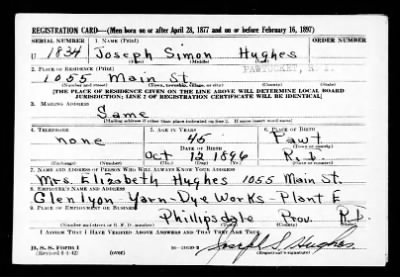 REGISTRATION CARD—(Men born on or after April 28, 1877 and on or before February 16, 1897)
SERIAL NUMBER 1. NAME (Print) ORDER NUMBER
U 1834 Joseph Simon Hughes
(First) (Middle) (Last)
2. PLACE OF RESIDENCE (Print) PAWTUCKET, R. I.
1055 Main St.
(Number and street) (Town, township, village, or city) (County) (State)
[THE PLACE OF RESIDENCE GIVEN ON THE LINE ABOVE WILL DETERMINE LOCAL BOARD
JURISDICTION; LINE 2 OF REGISTRATION CERTIFICATE WILL BE IDENTICAL]
3. MAILING ADDRESS
Same
[Mailing address if other than place indicated on line 2. If same insert word same]
4. TELEPHONE 5. AGE IN YEARS 6. PLACE OF BIRTH
none 45 Pawt
DATE OF BIRTH
Oct 12 1896 R.I.
(Exchange) (Number) (Mo.) (Day) (Yr.) (State or country)
7. NAME AND ADDRESS OF PERSON WHO WILL ALWAYS KNOW YOUR ADDRESS
Mrs. Elizabeth Hughes 1055 Main St.
8. EMPLOYER'S NAME AND ADDRESS
Glenlyon Yarn-Dye Works-Plant E
9. PLACE OF EMPLOYMENT OR BUSINESS
Phillipsdale Prov. R.I.
(Number and street or R. F. D. number) (Town) (County) (State)
I AFFIRM THAT I HAVE VERIFIED ABOVE ANSWERS AND THAT THEY ARE TRUE.
D. S. S. FORM 1
(over) Joseph S. Hughes